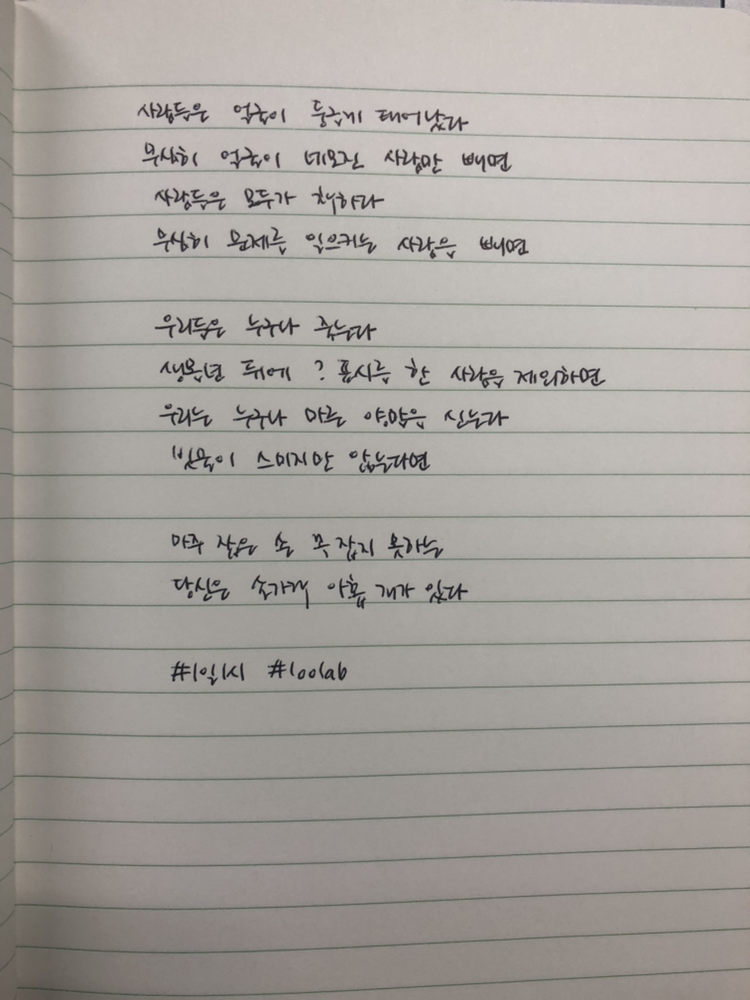 사람들은 얼굴이 둥글게 태어났다
무심히 얼굴이 네모진 사람만 빼면
사람들은 모두가 착하다
무심히 문제를 일으키는 사람을 빼면
우리들은 누구나 죽는다
생몰년 뒤에 ? 표시를 한 사람을 제외하면
우리는 누구나 마른 양말을 신는다
빗물이 스미지만 않는다면
마주 잡은 손 꼭 잡지 못하는
당신은 손가락 아홉 개가 있다
#1일1시 #100lab